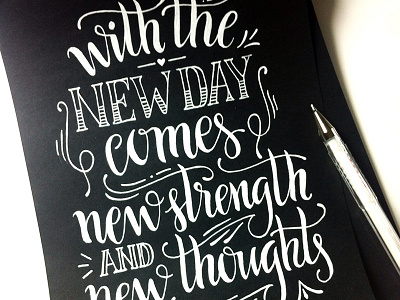 with the
NEW DAY
comes
new strength
AND
new thoughts